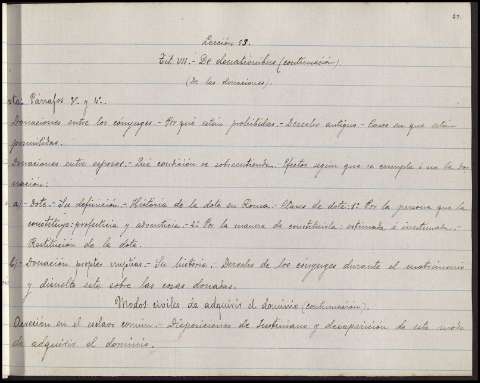 Lección 13.
Tit. VII. - De donationibus (continuación)
(De las donaciones).
Párrafos 3º. y 4º.
Donaciones entre los cónyuges. - Por qué están prohibidas. - Derecho antiguo. - Casos en que están
permitidas.
Donaciones entre esposos. - Qué condición se sobreentiende. Efectos según que se cumpla ó no la do-
nación:
a. - Dote. - Su definición. - Historia de la dote en Roma. - Clases de dote: 1º. Por la persona que la
constituye: profecticia y adventicia. - 2º. Por la manera de constituirla: estimada é inestimada.
Restitución de la dote.
b). - Donación propter nuptias. - Su historia. Derechos de los cónyuges durante el matrimonio
y disuelto este sobre las cosas donadas.
Modos civiles de adquirir el dominio (continuación).
Accesión en el esclavo común. - Disposiciones de Justiniano y desaparición de este modo
de adquirir el dominio.